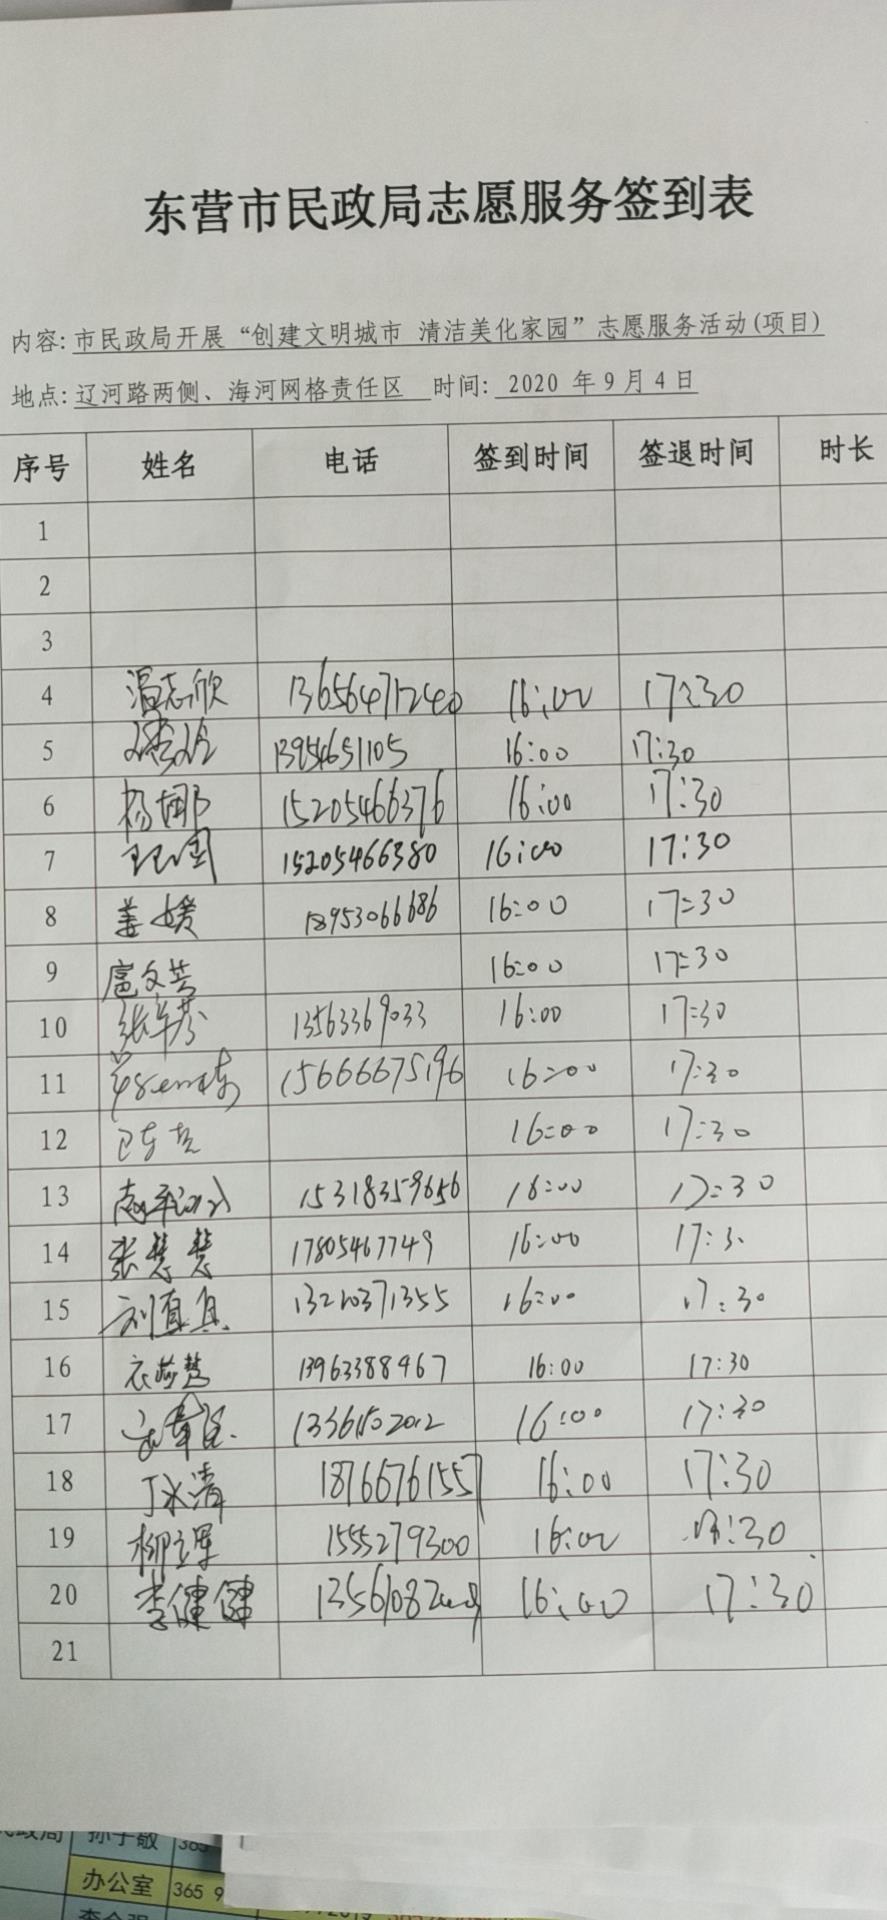 东营市民政局志愿服务签到表
内容: 市民政局开展“创建文明城市 清洁美化家园”志愿服务活动(项目)
地点: 辽河路两侧、海河网格责任区 时间: 2020 年9月4日
序号 姓名 电话 签到时间 签退时间 时长
1
2
3
4 温志欣 13656471240 16:00 17:30
5 13954651105 16:00 17:30
6 杨娜 15205466376 16:00 17:30
7 15205466380 16:00 17:30
8 姜媛 18953066686 16:00 17:30
9 扈文芸 16:00 17:30
10 13563369033 16:00 17:30
11 15666675196 16:00 17:30
12 16:00 17:30
13 15318359656 16:00 17:30
14 张慧慧 17805467749 16:00 17:30
15 刘真真 13210371355 16:00 17:30
16 13963388467 16:00 17:30
17 16:00 17:30
18 丁永清 18766761557 16:00 17:30
19 1555279300 16:00 17:30
20 李健健 16:00 17:30
21
孙子敬 365
办公室 365 9